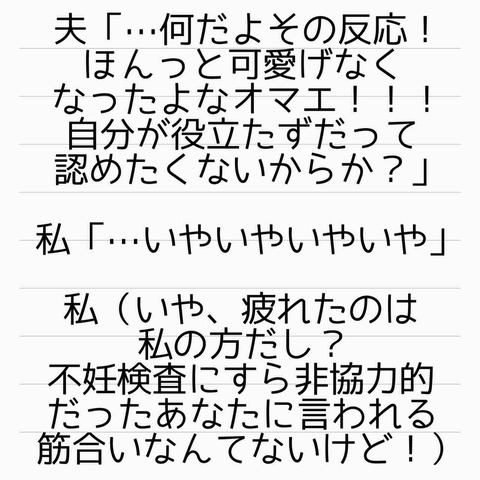 夫「…何だよその反応！
ほんっと可愛げなく
なったよなオマエ！！！
自分が役立たずだって
認めたくないからか？」
私「…いやいやいやいや」
私（いや、疲れたのは
私の方だし？
不妊検査にすら非協力的
だったあなたに言われる
筋合いなんてないけど！）